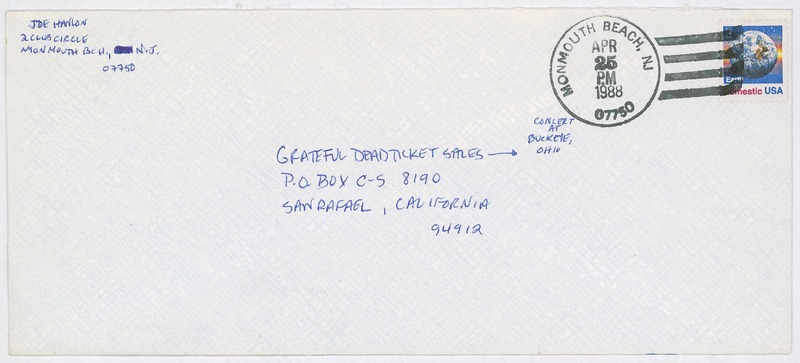 JOE HANLON
2 CLUB CIRCLE
MONMOUTH BCH., N.J.
07750
MONMOUTH BEACH, NJ
APR
25
PM
1988
07750
Earth
Domestic USA
CONCERT
AT
BUCKEYE,
OHIO
GRATEFUL DEAD TICKET SALES →
P.O. BOX C-S 8190
SAN RAFAEL, CALIFORNIA
94912